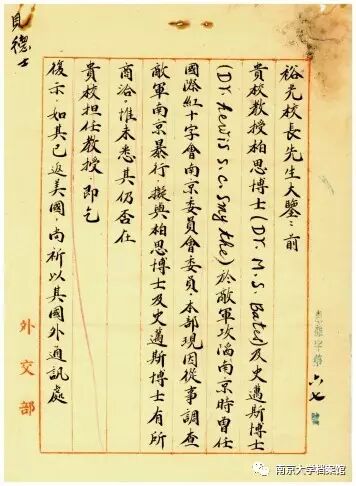 六七
裕光校長先生大鑒：前
貴校教授柏思博士(Dr. M. S. Bates)及史邁斯博士
(Dr. Lewis S. C. Smythe)於敵軍攻陷南京時曾任
國際紅十字會南京委員會委員，本部現因從事調查
敵軍南京暴行，擬與柏思博士及史邁斯博士有所
商洽，惟未悉其仍否在
貴校担任教授，即乞
復示，如其已返美國，尚祈以其國外通訊處
外交部
貝德士
南京大学档案馆